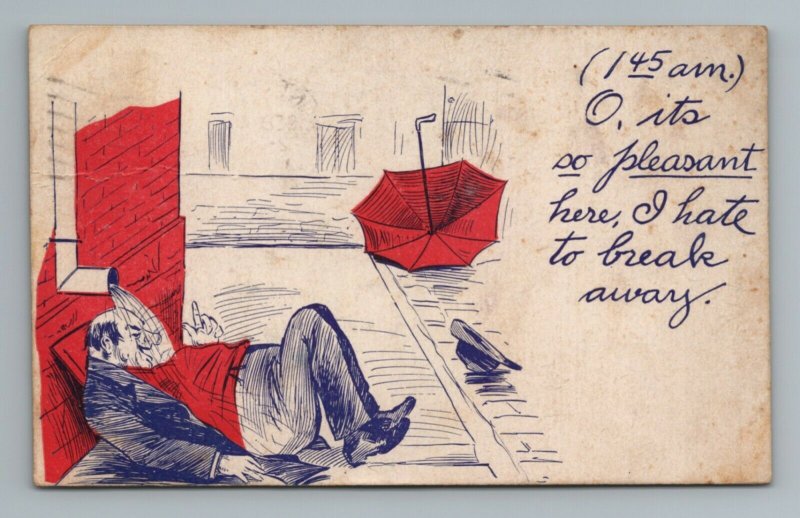 (1 45 am.)
O, its
so pleasant
here, I hate
to break
away.